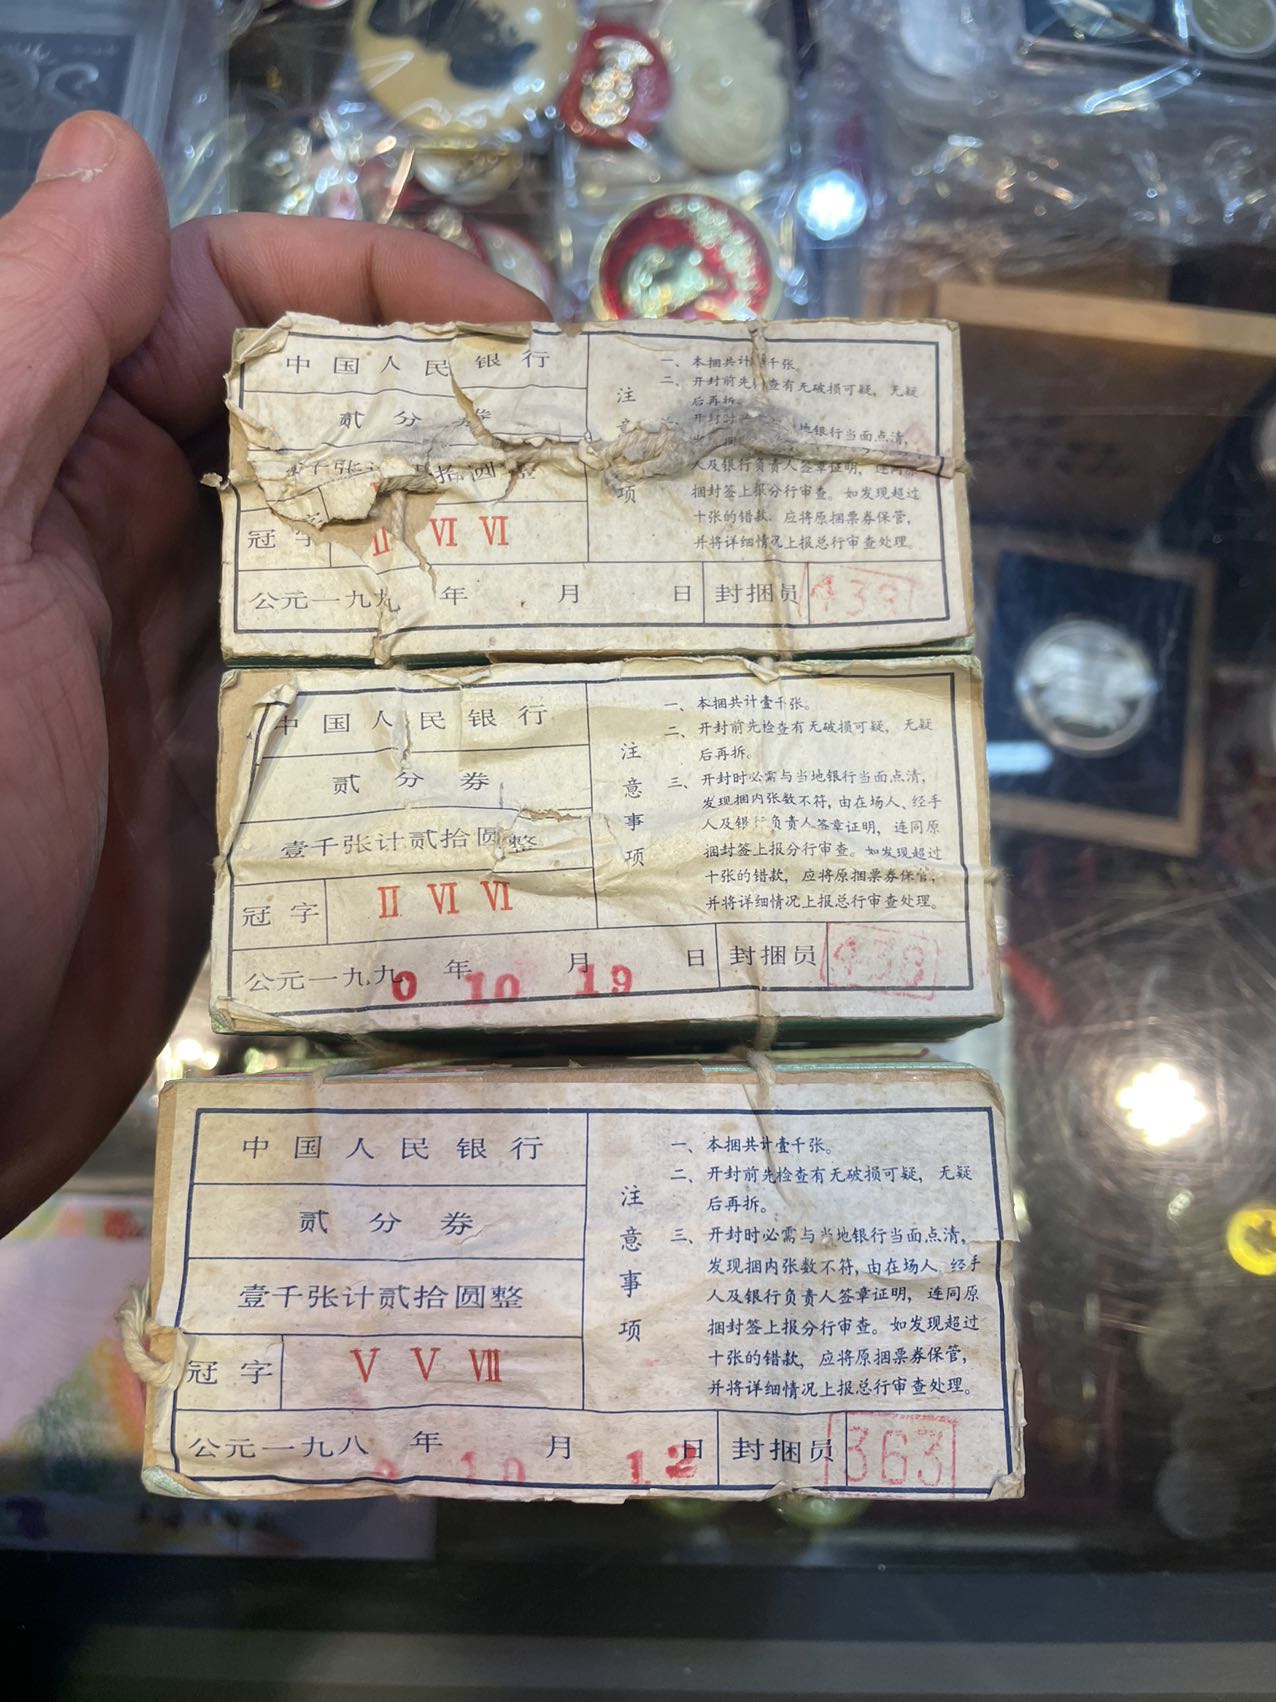 中国人民银行
贰分券
千张计 拾圆整
冠字 II VI VI
公元一九九 年 月 日 封捆员 439
注 项
一、本捆共计 千张。
二、开封前先 查有无破损可疑，无疑
后再拆。
开封 地银行当面点清，
人及银行负责人签章证明，连同
捆封签上报分行审查。如发现超过
十张的错款，应将原捆票券保管，
并将详细情况上报总行审查处理。
中国人民银行
贰分券
壹千张计贰拾圆整
冠字 II VI VI
公元一九九0年10月19日 封捆员 439
注意事项
一、本捆共计壹千张。
二、开封前先检查有无破损可疑，无疑
后再拆。
三、开封时必需与当地银行当面点清，
发现捆内张数不符，由在场人、经手
人及银行负责人签章证明，连同原
捆封签上报分行审查。如发现超过
十张的错款，应将原捆票券保管，
并将详细情况上报总行审查处理。
中国人民银行
贰分券
壹千张计贰拾圆整
冠字 V V VII
公元一九八 年10月12日 封捆员 363
注意事项
一、本捆共计壹千张。
二、开封前先检查有无破损可疑，无疑
后再拆。
三、开封时必需与当地银行当面点清，
发现捆内张数不符，由在场人、经手
人及银行负责人签章证明，连同原
捆封签上报分行审查。如发现超过
十张的错款，应将原捆票券保管，
并将详细情况上报总行审查处理。